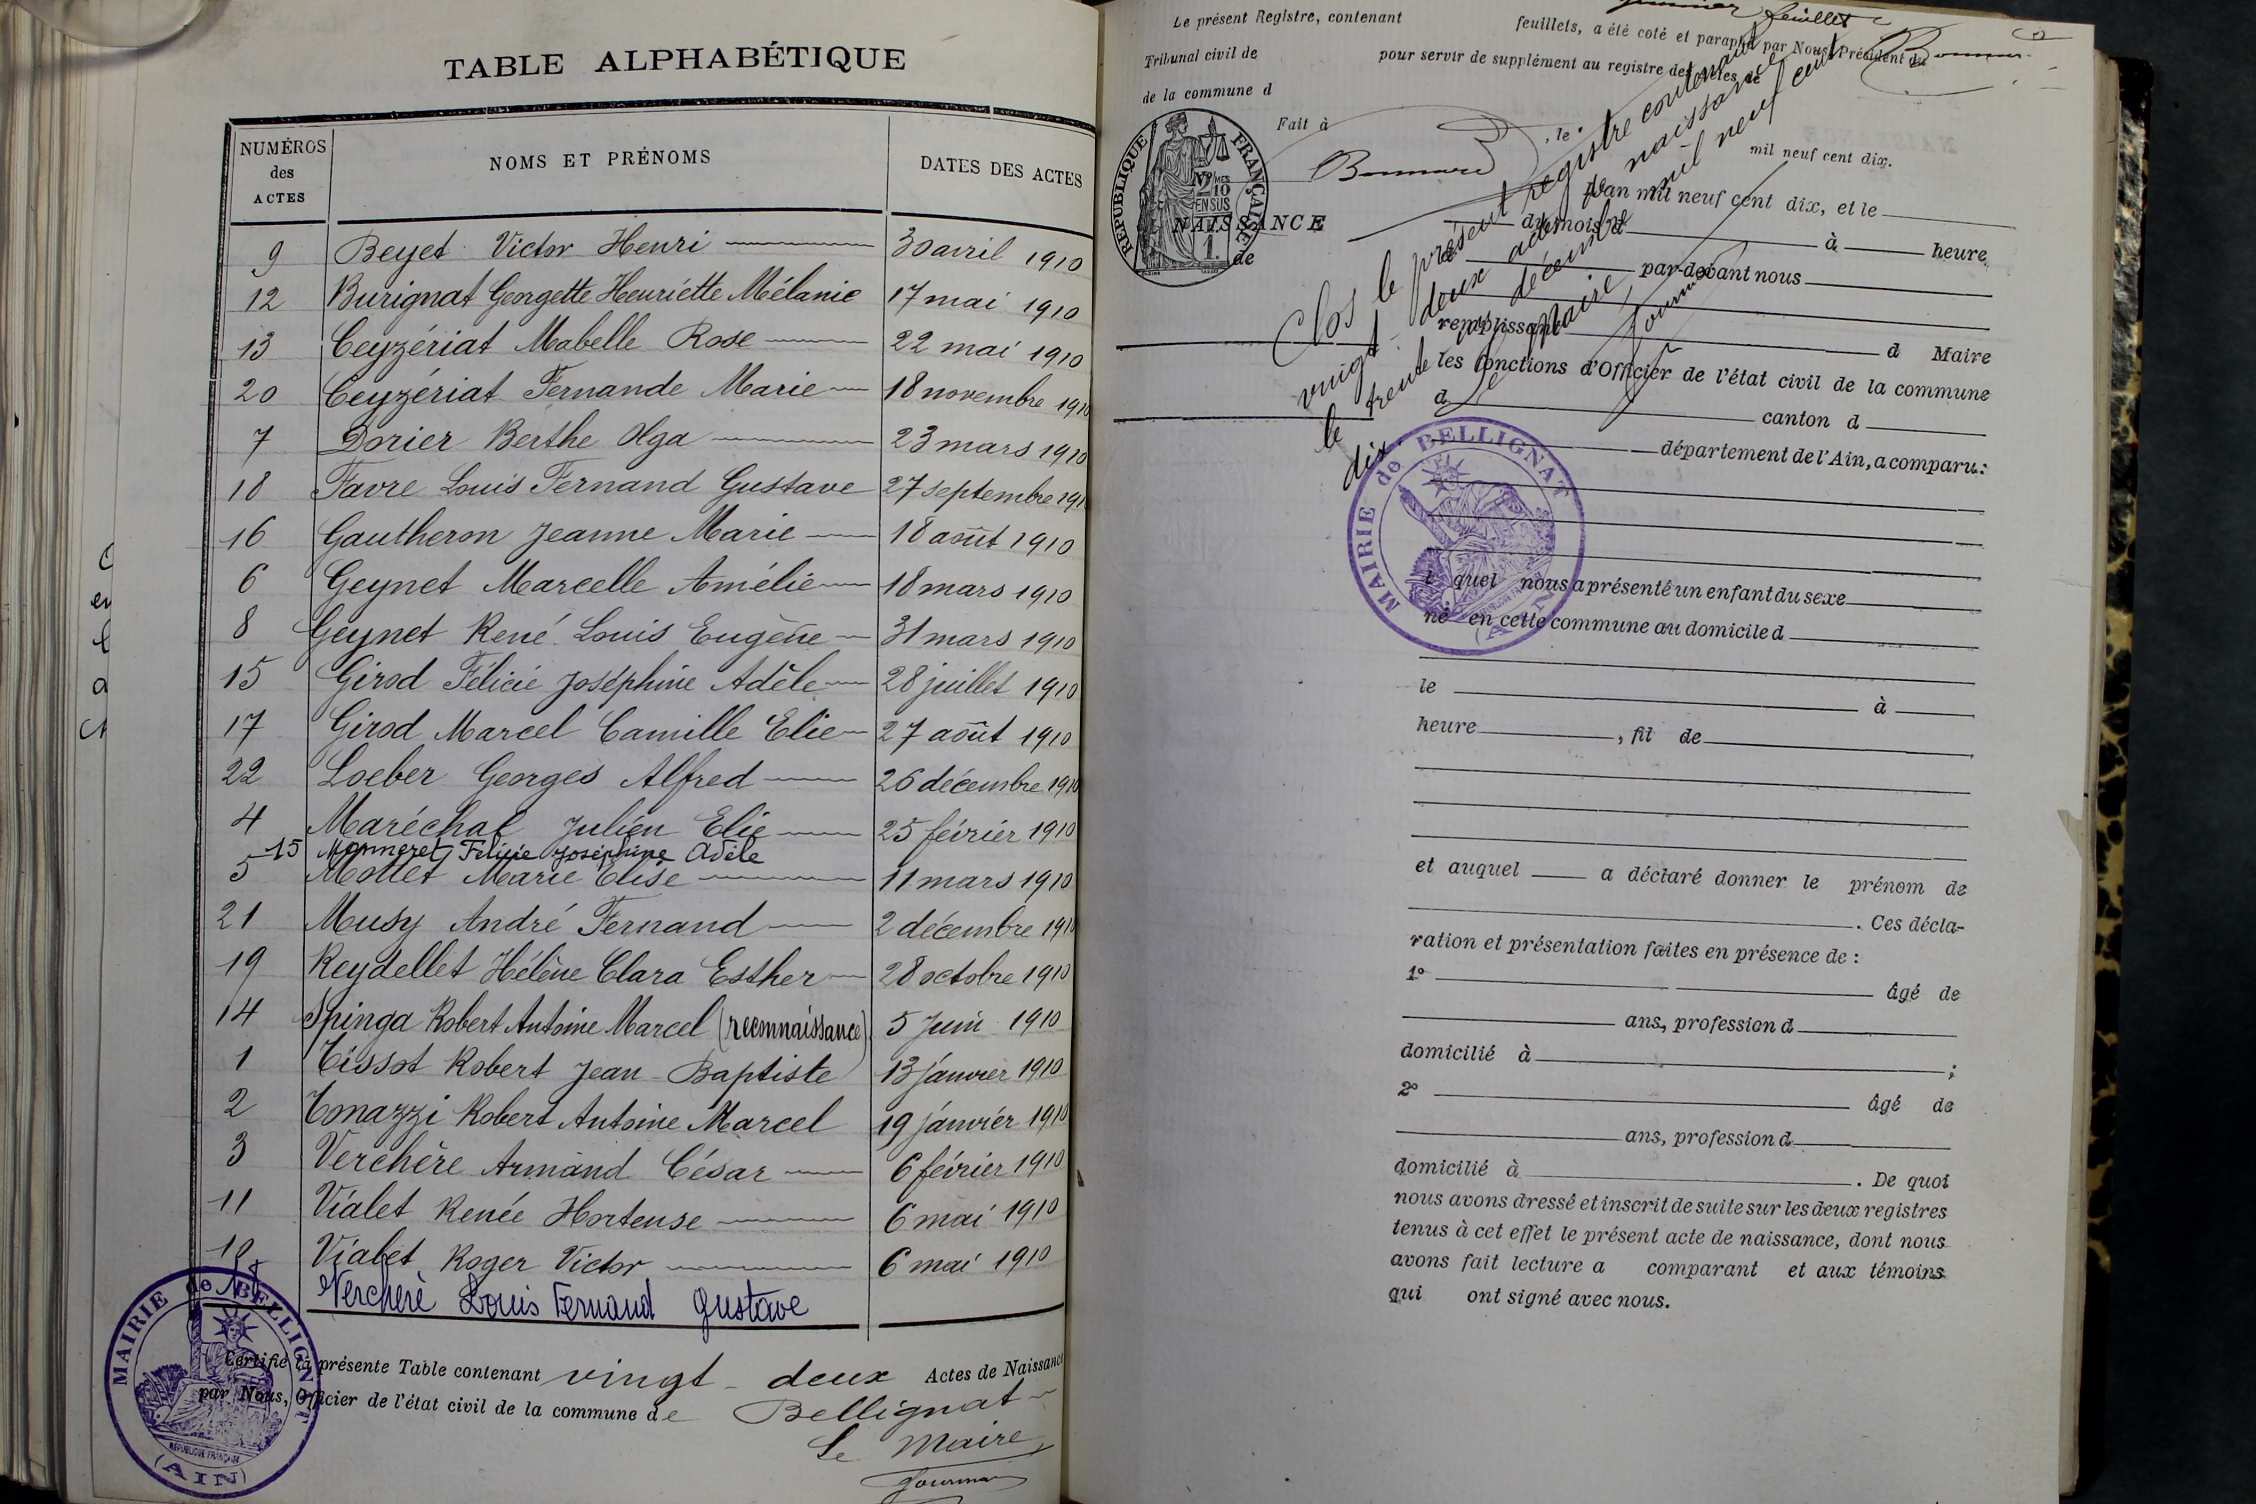 TABLE ALPHABÉTIQUE
NUMÉROS des ACTES
NOMS ET PRÉNOMS
DATES DES ACTES
9 Beyet Victor Henri 30 avril 1910
12 Burignat Georgette Henriette Mélanie 17 mai 1910
13 Ceyzériat Mabelle Rose 22 mai 1910
20 Ceyzériat Fernande Marie 18 novembre 1910
7 Dorier Berthe Olga 23 mars 1910
18 Favre Louis Fernand Gustave 27 septembre 191
16 Gautheron Jeanne Marie 18 août 1910
6 Geynet Marcelle Amélie 18 mars 1910
8 Geynet René Louis Eugène 31 mars 1910
15 Girod Félicie Joséphine Adèle 28 juillet 1910
17 Girod Marcel Camille Elie 27 août 1910
22 Loeber Georges Alfred 26 décembre 1910
4 Maréchal Julien Elie 25 février 1910
15 Monneret Félicie Joséphine Adèle
5 Mottet Marie Elise 11 mars 1910
21 Musy André Fernand 2 décembre 1910
19 Reydellet Hélène Clara Esther 28 octobre 1910
14 Spinga Robert Antoine Marcel (reconnaissance) 5 Juin 1910
1 Tissot Robert Jean-Baptiste 13 janvier 1910
2 Tonazzi Robert Antoine Marcel 19 janvier 1910
3 Verchère Armand César 6 février 1910
11 Vialet Renée Hortense 6 mai 1910
10 Vialet Roger Victor 6 mai 1910
18 Verchère Louis Fernand Gustave
Certifié la présente Table contenant vingt-deux Actes de Naissance
par Nous, Officier de l'état civil de la commune de Bellignat
Le Maire
MAIRIE de BELLIGNAT
RÉPUBLIQUE FRANÇAISE
(AIN)
feuillet
Le présent Registre, contenant feuillets, a été coté et paraphé par Nous, Président du
Tribunal civil de pour servir de supplément au registre des actes de
de la commune d
Fait à , le mil neuf cent dix.
Bonnard
RÉPUBLIQUE FRANÇAISE
2/10 EN SUS
1.
NAISSANCE
de
L'an mil neuf cent dix, et le
du mois d à heure
par-devant nous
remplissant
d Maire
les fonctions d'Officier de l'état civil de la commune
d canton d
département de l'Ain, a comparu:
Clos le présent registre contenant
vingt-deux actes de naissance
le trente un décembre mil neuf cent
dix.
Le Maire
MAIRIE de BELLIGNAT
(AIN)
l quel nous a présenté un enfant du sexe
né en cette commune au domicile d
le à
heure , fil de
et auquel a déclaré donner le prénom de
. Ces décla-
ration et présentation faites en présence de :
1° âgé de
ans, profession d
domicilié à ;
2° âgé de
ans, profession d
domicilié à . De quoi
nous avons dressé et inscrit de suite sur les deux registres
tenus à cet effet le présent acte de naissance, dont nous
avons fait lecture a comparant et aux témoins
qui ont signé avec nous.